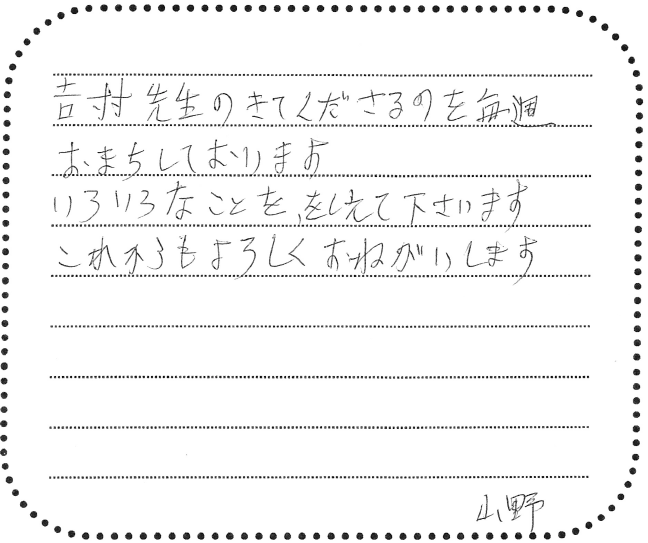 吉村先生のきてくださるのを毎週
おまちしております
いろいろなことを、をしえて下さいます
これからもよろしくおねがいします
山野